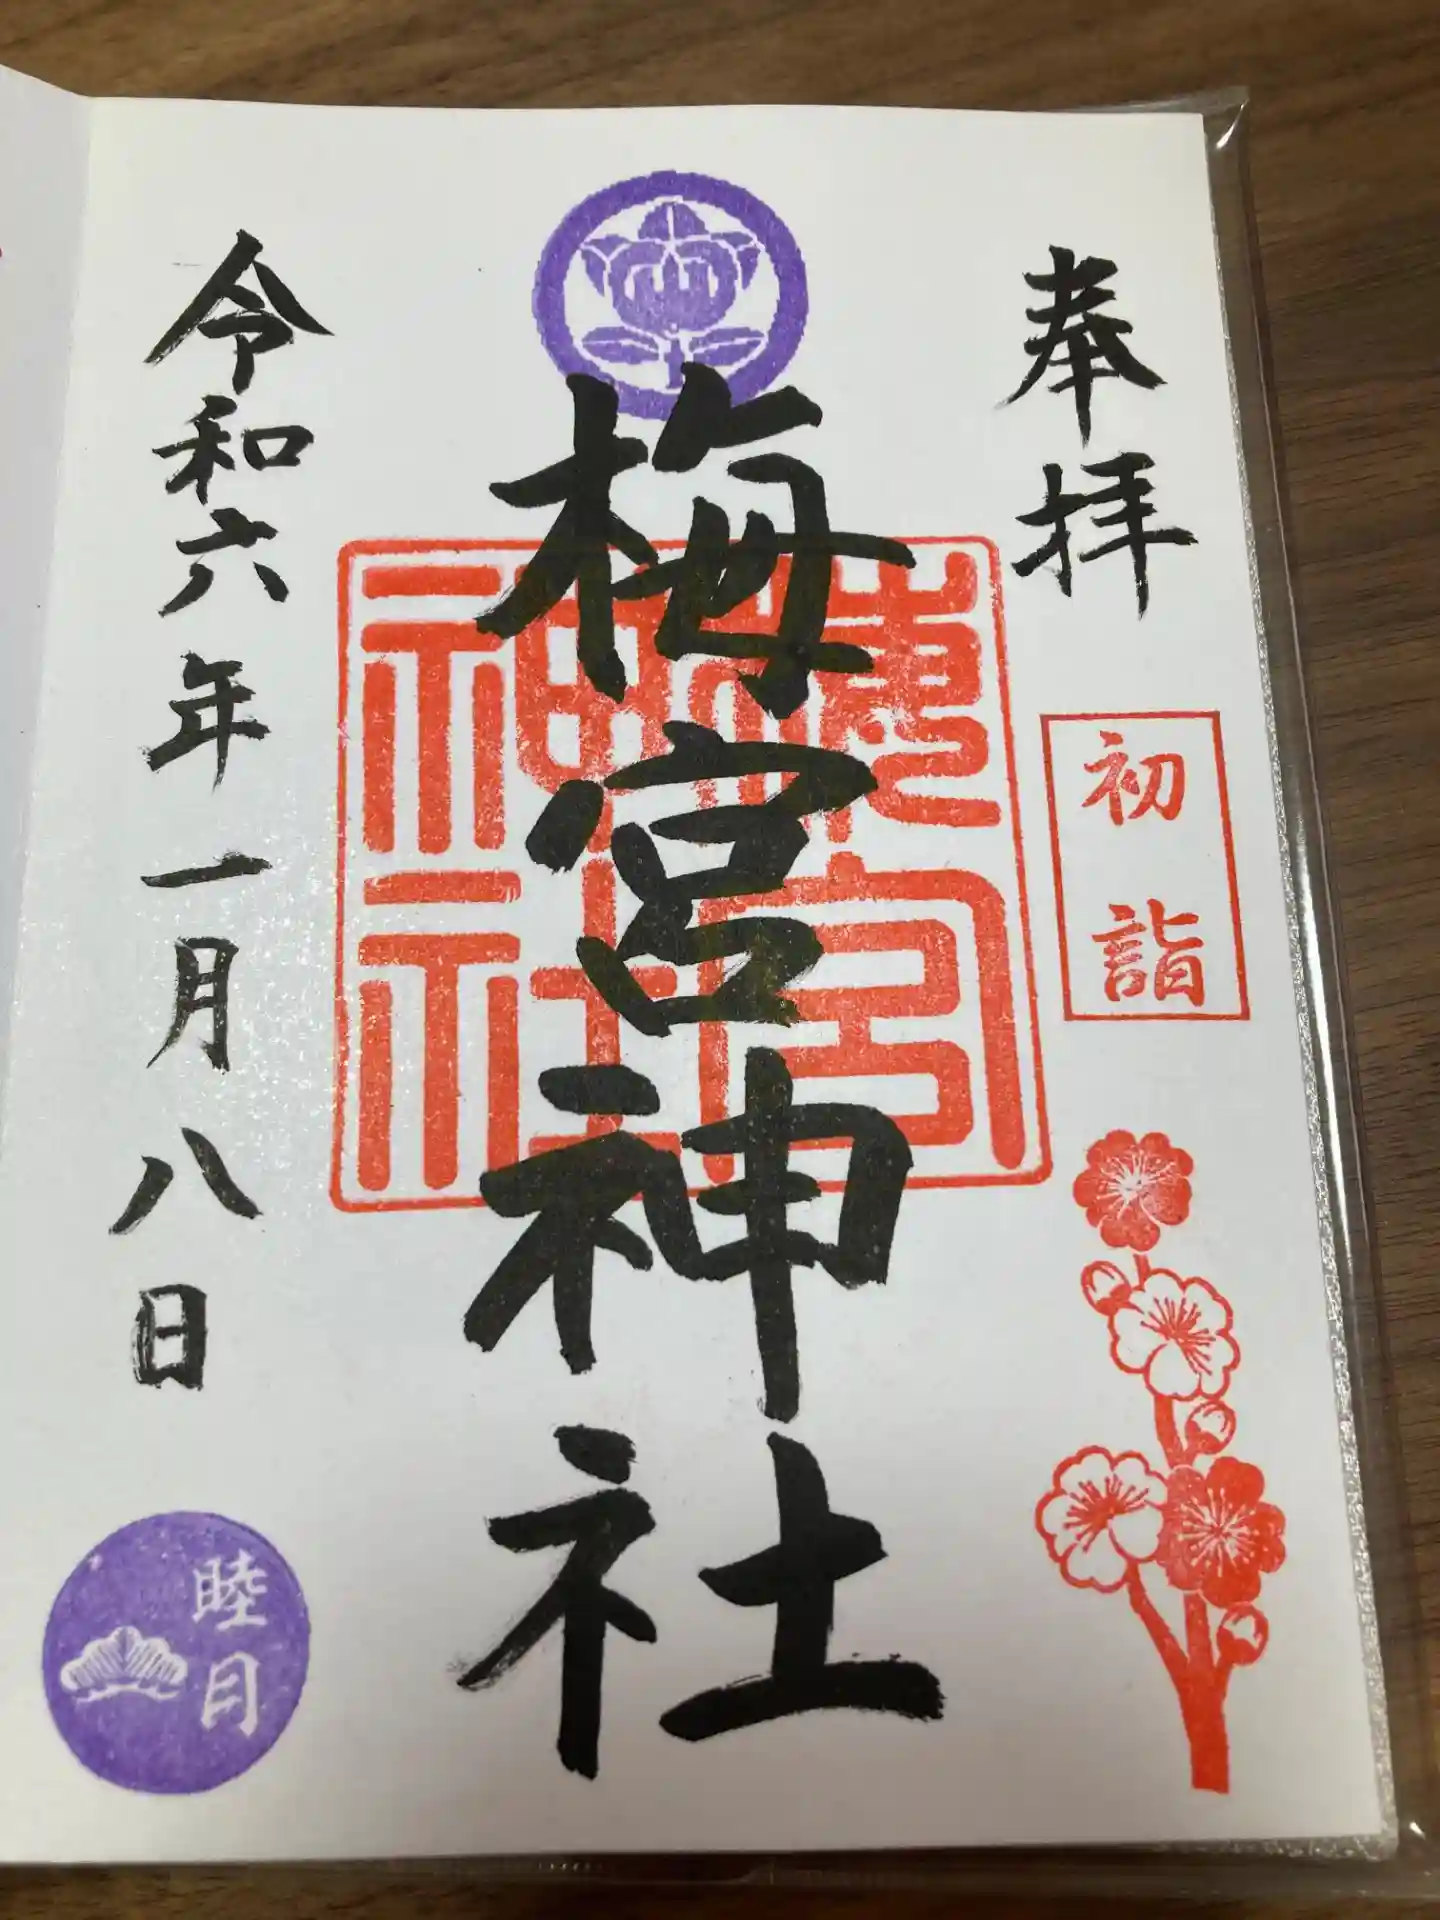 奉拝
初詣
梅宮神社
令和六年一月八日
睦月